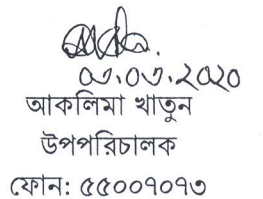 ০৩.০৩.২০২০
আকলিমা খাতুন
উপপরিচালক
ফোন: ৫৫০০৭০৭৩